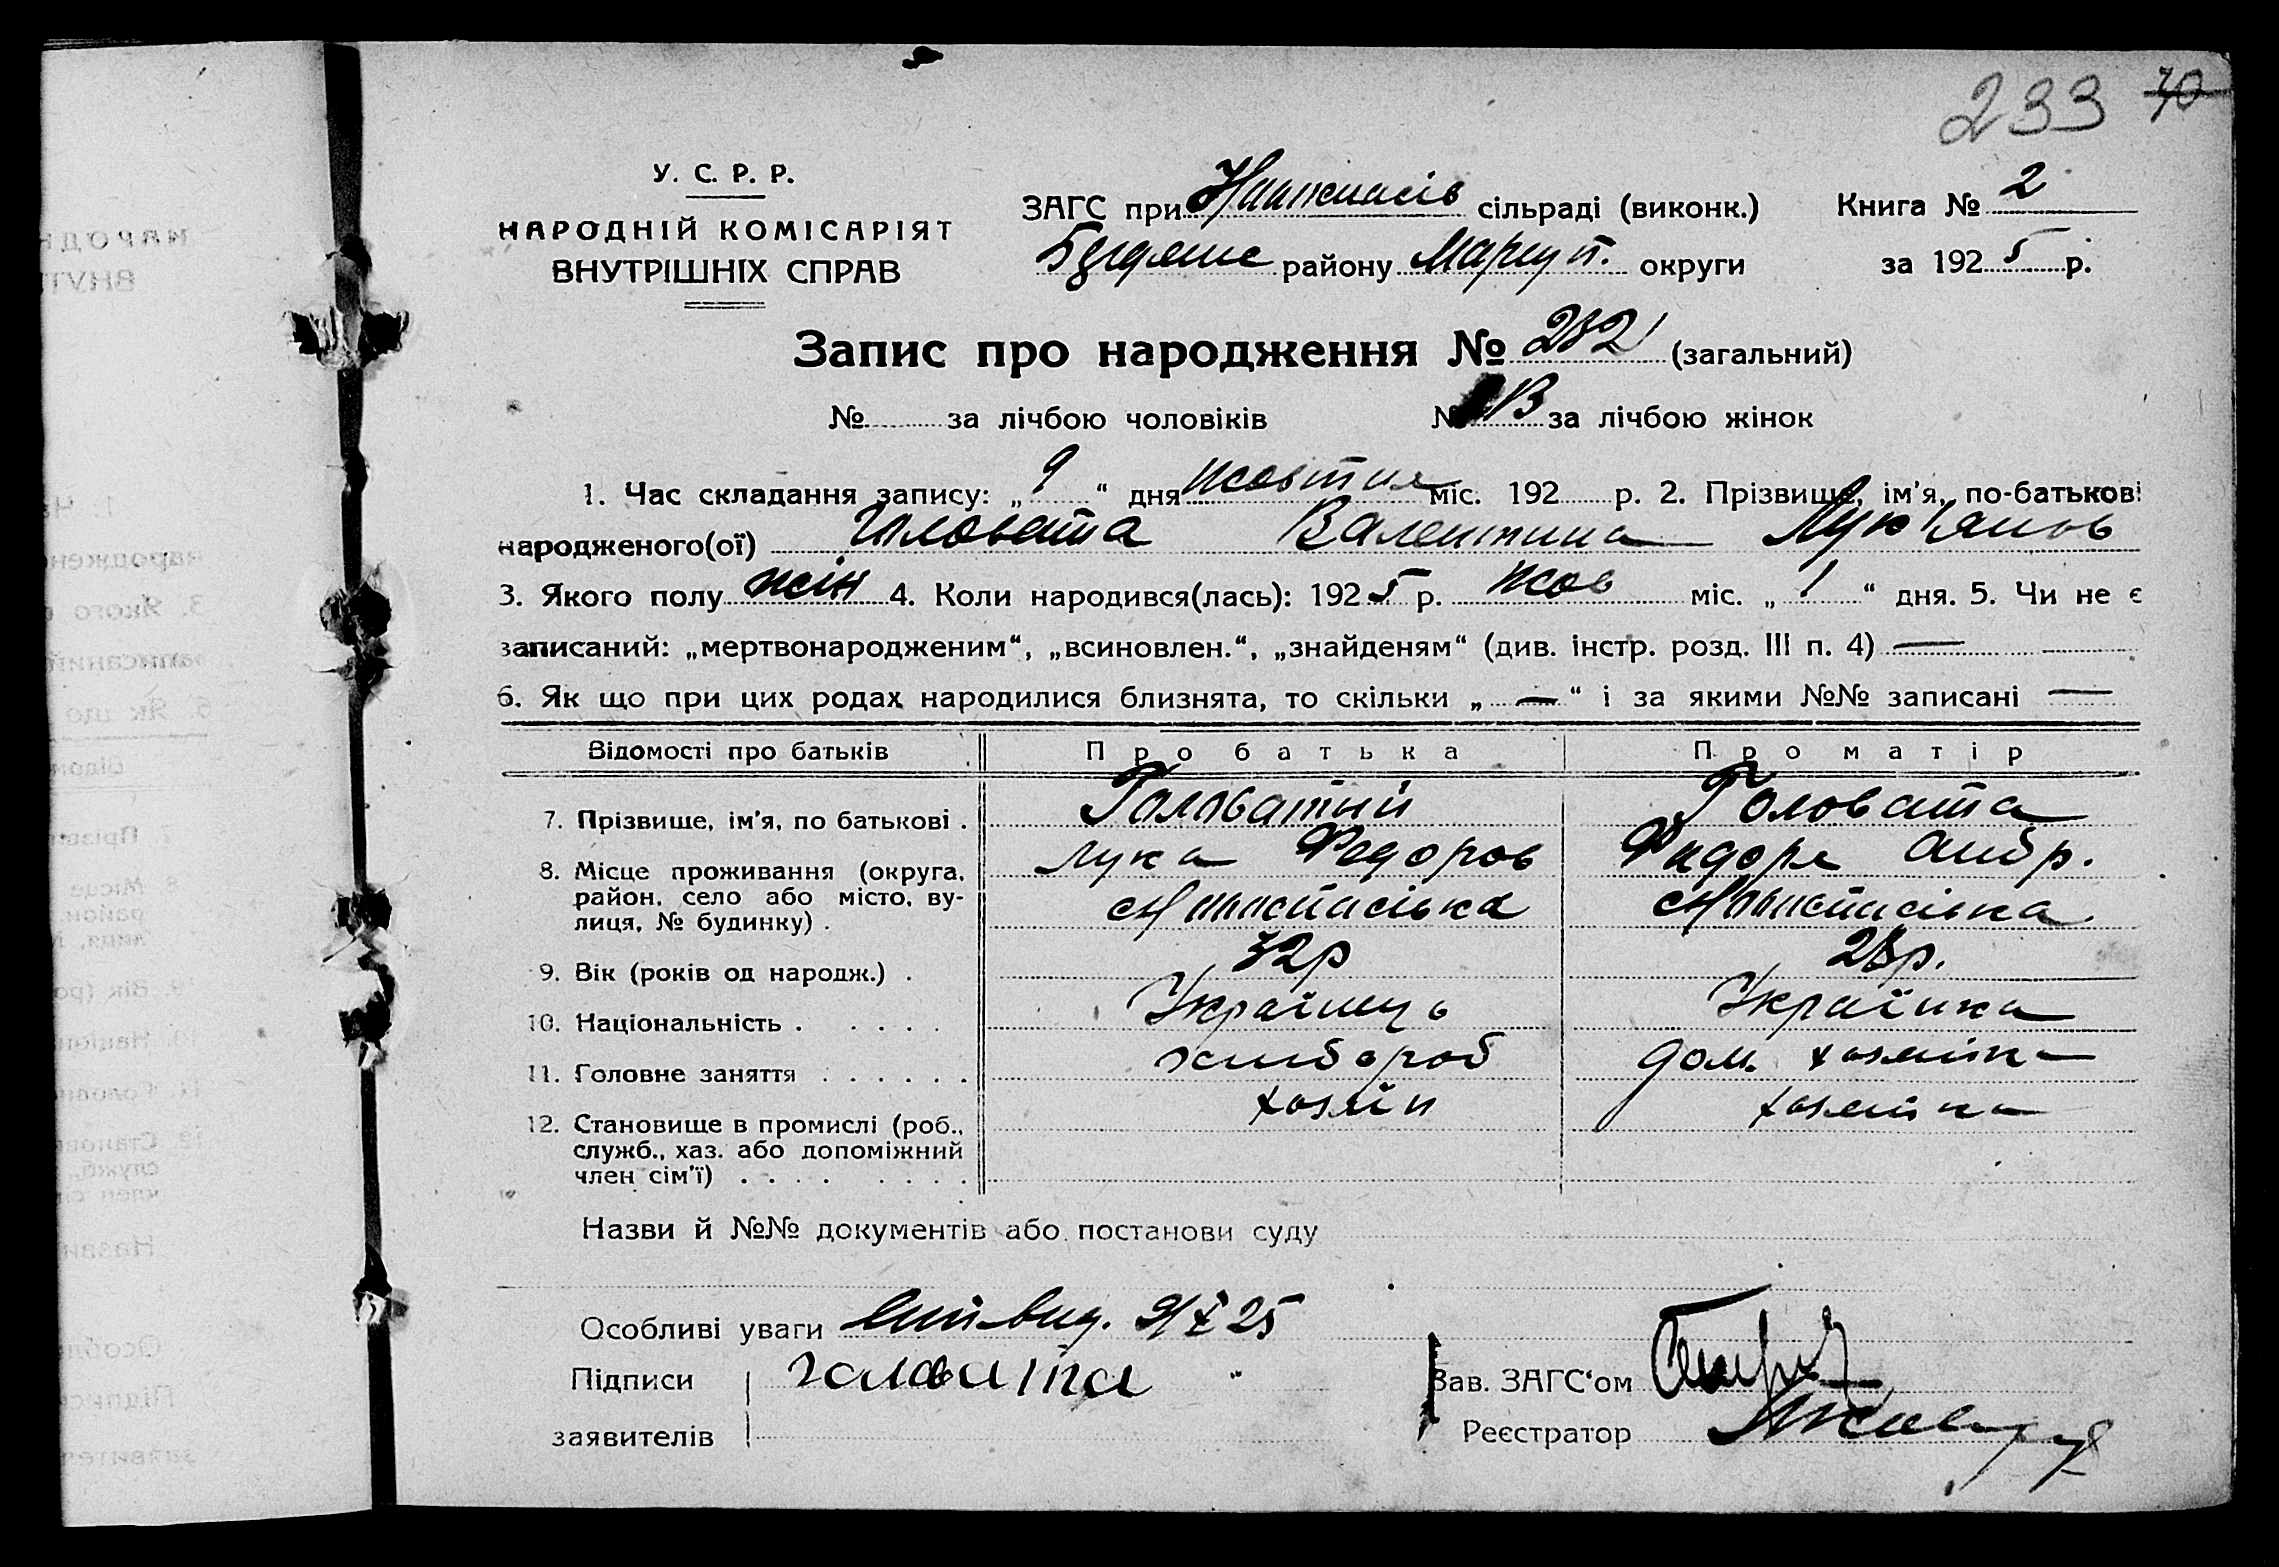 233 70
У. С. Р. Р.
НАРОДНІЙ КОМІСАРІЯТ
ВНУТРІШНІХ СПРАВ
ЗАГС при сільраді (виконк.) Книга № 2
району Маріуп. округи за 1925 р.
Запис про народження № 232 (загальний)
№ за лічбою чоловіків № за лічбою жінок
1. Час складання запису: „ 9 “ дня жовтня міс. 192 р. 2. Прізвище, ім'я, по-батькові
народженого(ої) Головата Валентина Лук'янов
3. Якого полу жін 4. Коли народився(лась): 1925 р. жов міс. „ 1 “ дня. 5. Чи не є
записаний: „мертвонародженим“, „всиновлен.“, „знайденям“ (див. інстр. розд. III п. 4) —
6. Як що при цих родах народилися близнята, то скільки „ — “ і за якими №№ записані —
Відомості про батьків Про батька Про матір
7. Прізвище, ім'я, по батькові . Головатий Головата
Лука Федоров Андр.
8. Місце проживання (округа, район, село або місто, вулиця, № будинку) .
9. Вік (років од народж.) . 32р 28р.
10. Національність . . . . . Українець Українка
11. Головне заняття . . . . . . хлибороб дом. хозяйка
12. Становище в промислі (роб., служб., хаз. або допоміжний член сім'ї) . . . . . . . . хозяїн хозяйка
Назви й №№ документів або постанови суду
Особливі уваги 9/X 25
Підписи головата Зав. ЗАГС'ом
заявителів Реєстратор